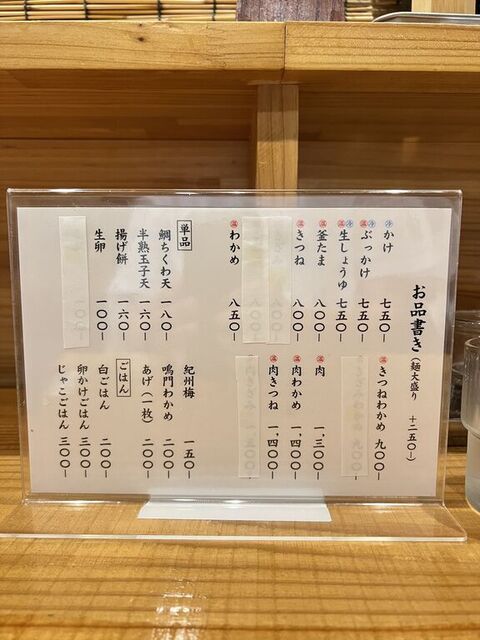 お品書き（麺大盛り　＋二五〇-）
冷温かけ　七五〇-
冷温ぶっかけ　七五〇-
冷温生しょうゆ　七五〇-
温釜たま　八〇〇-
温きつね　八〇〇-
温わかめ　八五〇-
温きつねわかめ　九〇〇-
温肉　一、三〇〇-
温肉わかめ　一、四〇〇-
温肉きつね　一、四〇〇-
単品
鯛ちくわ天　一八〇-
半熟玉子天　一六〇-
揚げ餅　一六〇-
生卵　一〇〇-
紀州梅　一五〇-
鳴門わかめ　二〇〇-
あげ（一枚）　二〇〇-
ごはん
白ごはん　二〇〇-
卵かけごはん　三〇〇-
じゃこごはん　三〇〇-